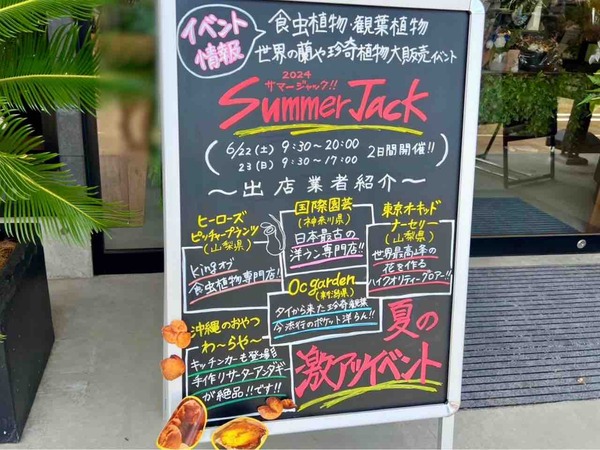 イベント
情報
食虫植物・観葉植物
世界の蘭や珍奇植物大販売イベント
2024
サマージャック!!
Summer Jack
6/22(土) 9:30～20:00
23(日) 9:30～17:00
2日間開催!!
～出店業者紹介～
ヒーローズ
ピッチャープランツ
(山梨県)
Kingオブ
食虫植物専門店!!
国際園芸
(神奈川県)
日本最古の
洋ラン専門店!!
東京オーキッド
ナーセリー
(山梨県)
世界最高峰の
花を作る
ハイクオリティーグロアー!!
Oc garden
(新潟県)
タイから来た珍奇観葉
今流行のポケット洋らん!!
沖縄のおやつ
わ～らや～
キッチンカーも登場!!
手作りサーターアンダギー
が絶品!!です!!
夏の
激アツイベント